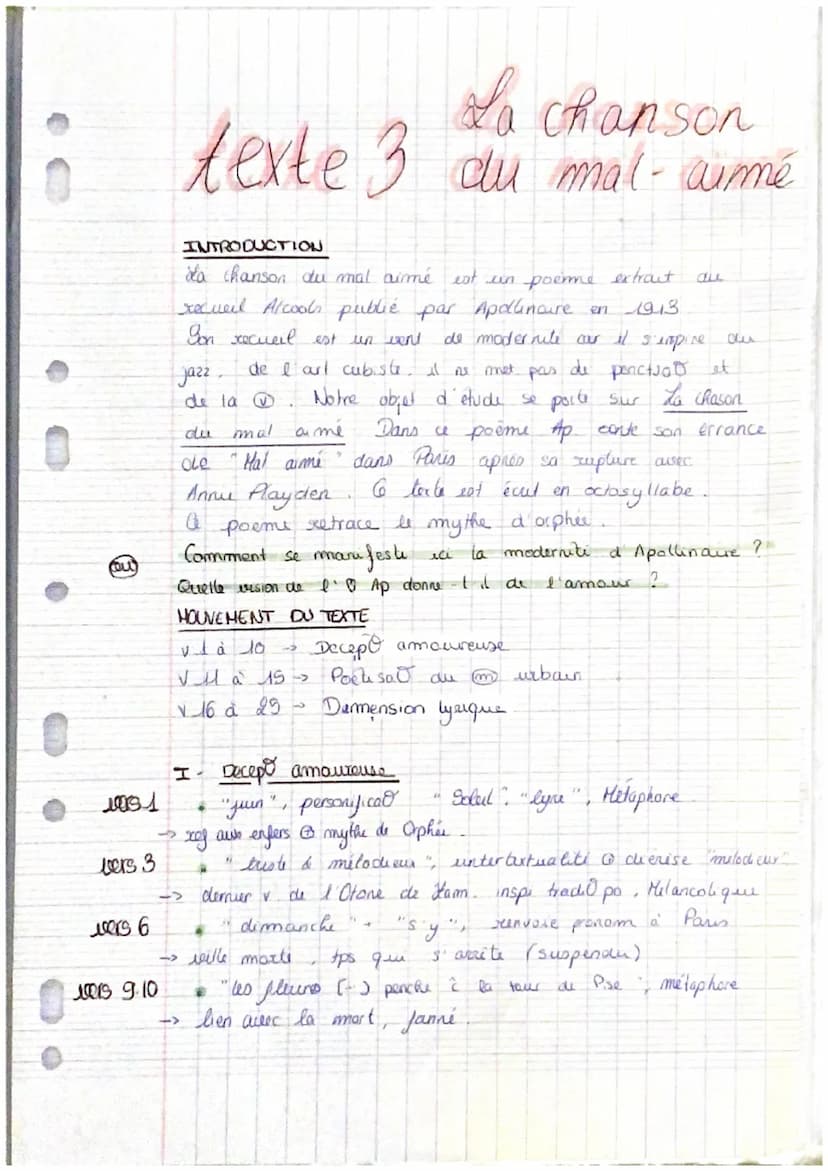 texte 3 La chanson
du mal-aimé
INTRODUCTION
La chanson du mal aimé est un poème extrait du
recueil Alcools publié par Apollinaire en 1913.
Son recueil est un vent de modernité car il s'inspire du
jazz, de l'art cubiste. il ne met pas de et
de la Ⓥ. Notre objet d'étude se porte sur La chason
du mal aimé Dans ce poème Ap. conte son errance
de "Mal aimé" dans Paris après sa rupture avec
Annie Playden. Ce texte est écrit en octosyllabe.
Ce poème retrace le mythe d'orphée.
Comment se manifeste ici la modernité d'Apollinaire ?
(ou) Quelle vision de l' Ap donne-t-il de l'amour ?
MOUVEMENT DU TEXTE
v 1 à 10 → amoureuse
V 11 à 15 → du ⓜ urbain
v 16 à 29 → Dimension lyrique
I- amoureuse
vers 1 • "juin", "Soleil", "lyre", Métaphore
→ ref aux enfers ⊕ mythe de Orphée.
vers 3 • "triste & mélodieux", intertextualité "melodieux"
→ dernier v de l' de Lam. inspi po, Mélancolique
vers 6 • "dimanche" + "s'y", renvoie pronom à Paris
→ ville morte, tps qui s'arrête (suspendu)
vers 9.10 • "les penche la tour de Pise", métaphore
→ lien avec la mort, fanné.